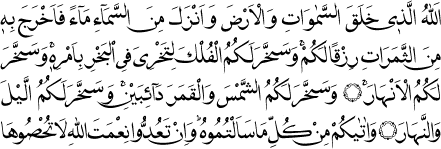 اَللّٰهُ الَّذ۪ي خَلَقَ السَّمٰوَاتِ وَالْاَرْضَ وَاَنْزَلَ مِنَ السَّمَٓاءِ مَٓاءً فَاَخْرَجَ بِه۪
مِنَ الثَّمَرَاتِ رِزْقًا لَكُمْۚ وَسَخَّرَ لَكُمُ الْفُلْكَ لِتَجْرِيَ فِي الْبَحْرِ بِاَمْرِه۪ۚ وَسَخَّرَ
لَكُمُ الْاَنْهَارَۚ ۝ وَسَخَّرَ لَكُمُ الشَّمْسَ وَالْقَمَرَ دَٓائِبَيْنِۚ وَسَخَّرَ لَكُمُ الَّيْلَ
وَالنَّهَارَۚ ۝ وَاٰتٰيكُمْ مِنْ كُلِّ مَا سَاَلْتُمُوهُۜ وَاِنْ تَعُدُّوا نِعْمَتَ اللّٰهِ لَا تُحْصُوهَا